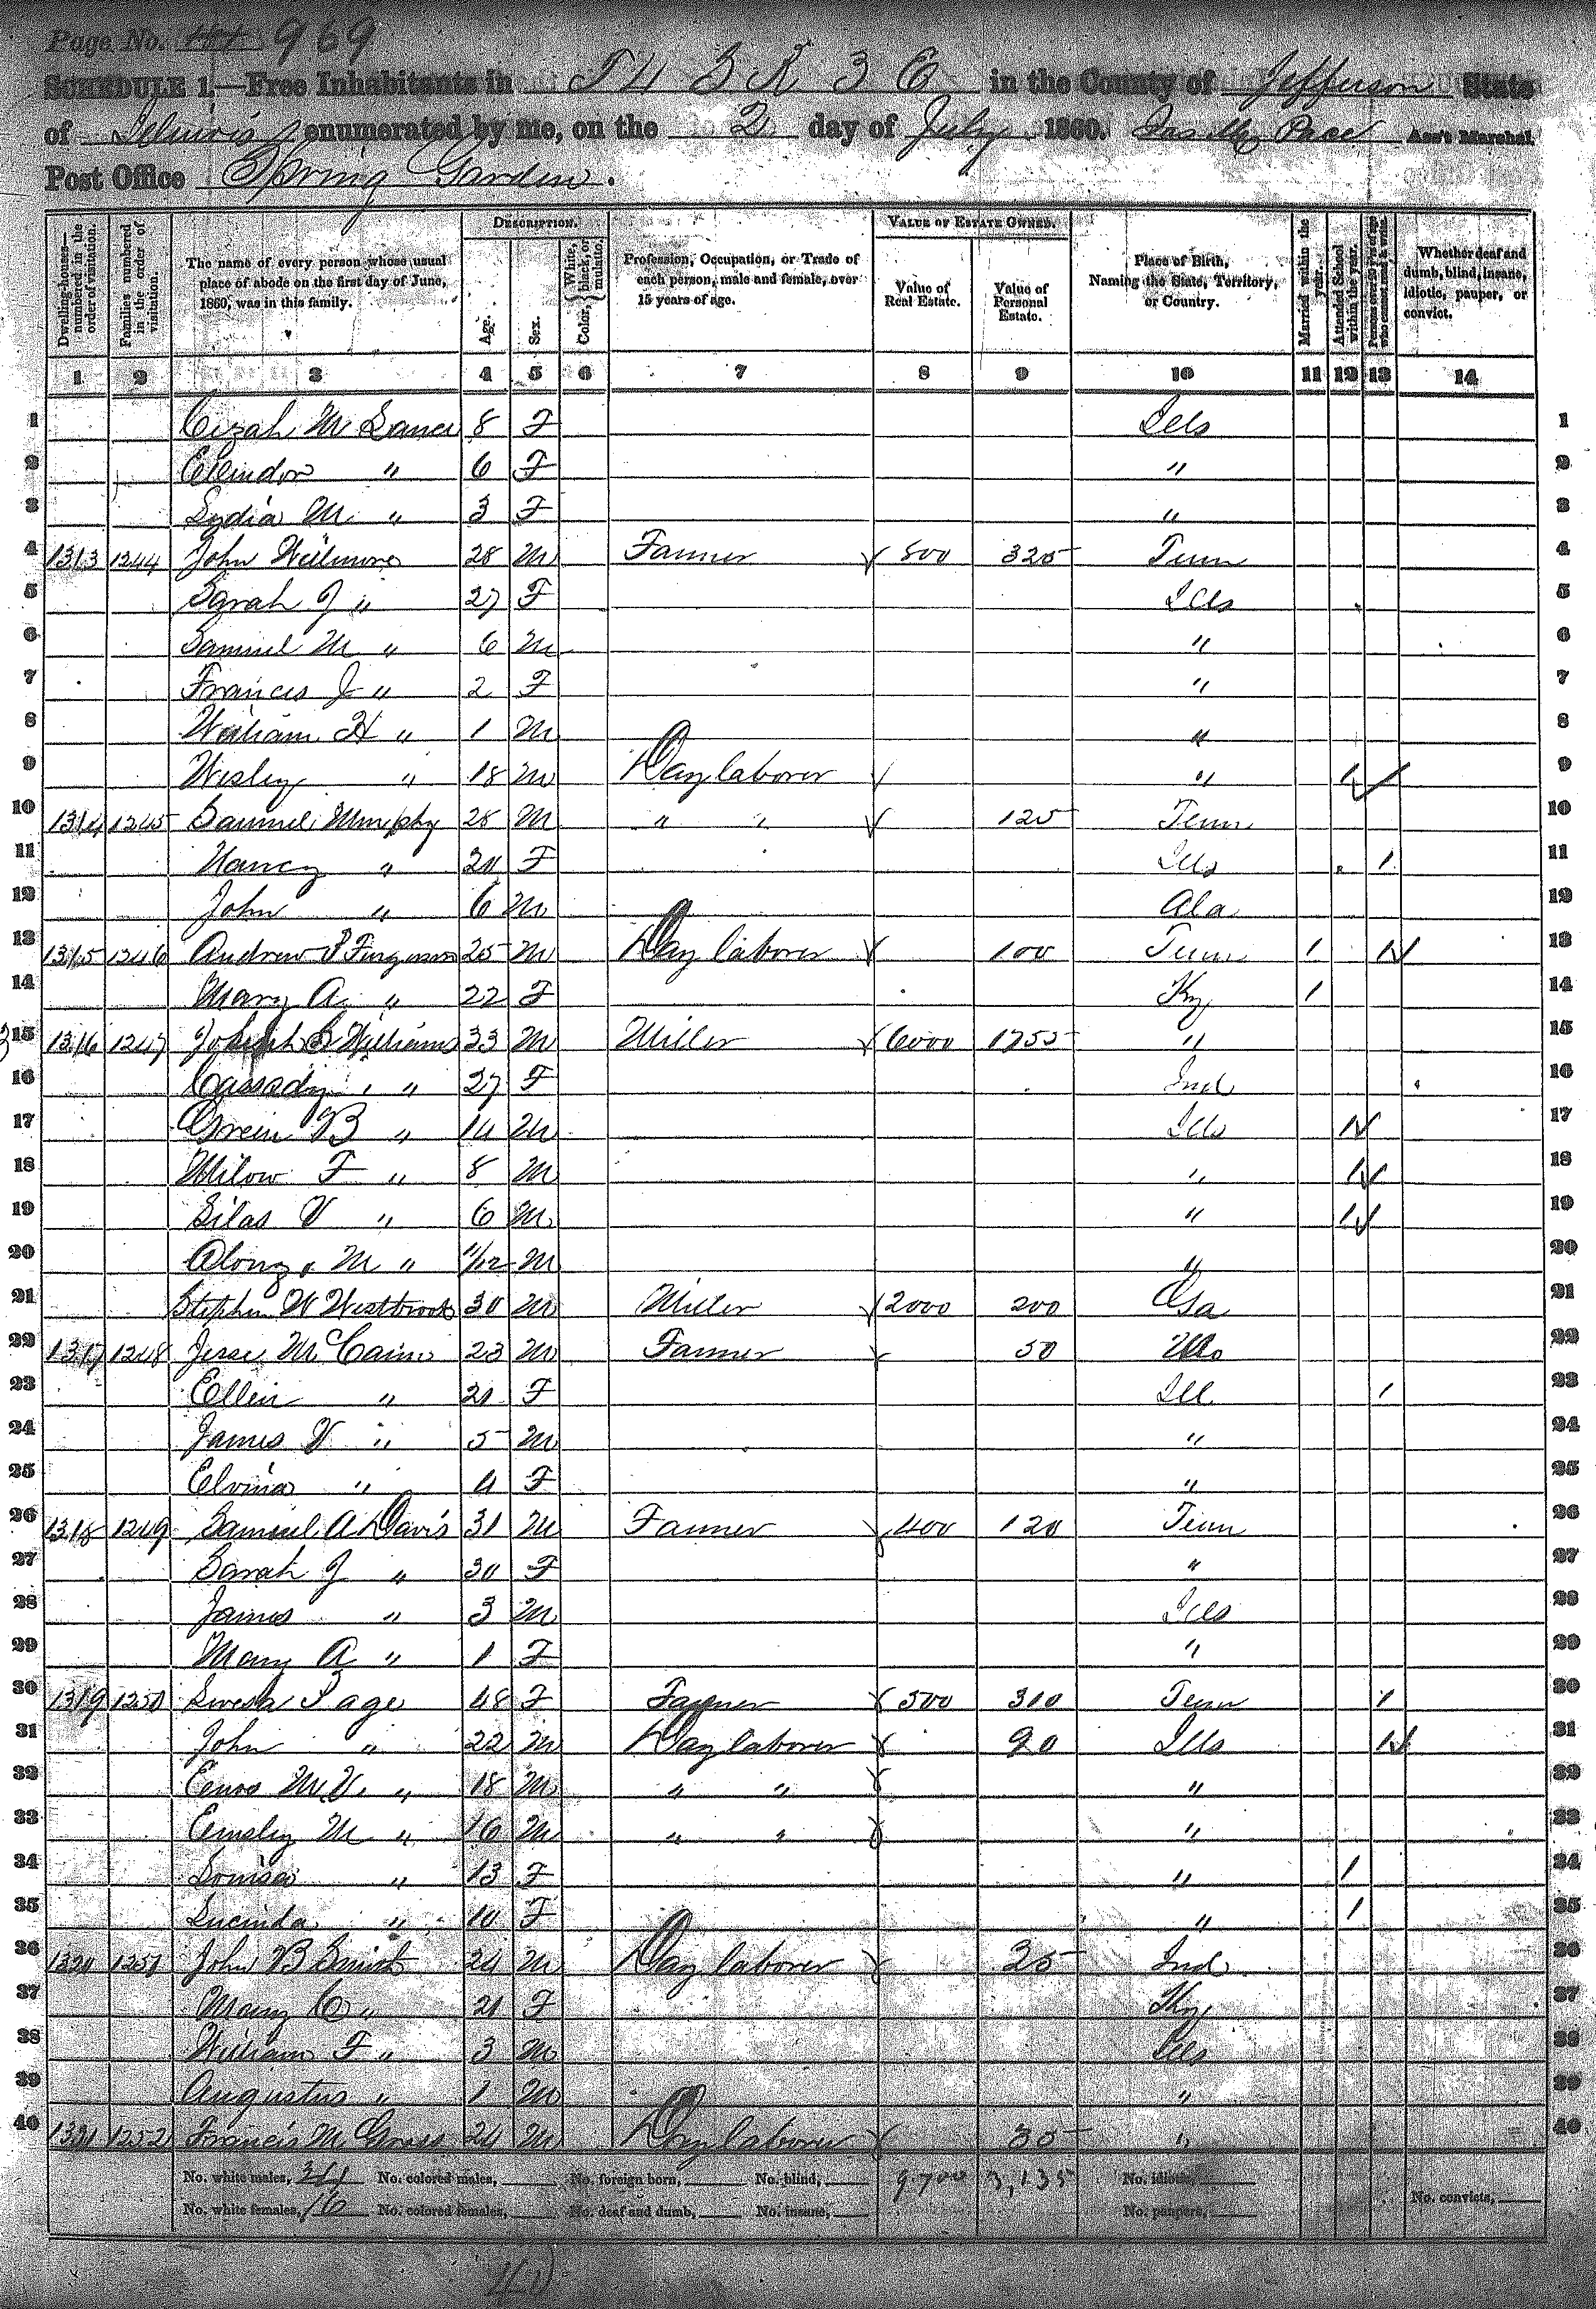 Page No. 44 969
SCHEDULE 1.—Free Inhabitants in T 4 S R 3 E in the County of Jefferson State
of Illinois enumerated by me, on the 2 day of July 1860. Jas M Pace Ass't Marshal.
Post Office Spring Garden.
Dwelling-houses—numbered in the order of visitation.
Families numbered in the order of visitation.
The name of every person whose usual place of abode on the first day of June, 1860, was in this family.
DESCRIPTION.
Age.
Sex.
Color, { White, black, or mulatto.
Profession, Occupation, or Trade of each person, male and female, over 15 years of age.
VALUE OF ESTATE OWNED.
Value of Real Estate.
Value of Personal Estate.
Place of Birth, Naming the State, Territory, or Country.
Married within the year.
Attended School within the year.
Persons over 20 y'rs of age who cannot read & write.
Whether deaf and dumb, blind, insane, idiotic, pauper, or convict.
1 2 3 4 5 6 7 8 9 10 11 12 13 14
1 M 8 F Ills 1
2 " 6 F " 2
3 Lydia M " 3 F " 3
4 1313 1244 John 28 M Farmer 500 325 Tenn 4
5 Sarah J " 27 F Ills 5
6 Samuel M " 6 M " 6
7 Francis J " 2 F " 7
8 William H " 1 M " 8
9 Wesley " 18 M Day laborer " 1 9
10 1314 1245 Samuel Murphy 28 M " " 125 Tenn 10
11 Nancy " 20 F Ills 1 11
12 John " 6 M Ala 12
13 1315 1246 Andrew J Furgerson 25 M Day laborer 100 Tenn 1 1 13
14 Mary A " 22 F Ky 1 14
15 1316 1247 Joseph Williams 33 M Miller 6000 1755 " 15
16 Cassady " 27 F Ind 16
17 Green B " 14 M Ills 1 17
18 Milow F " 8 M " 1 18
19 Silas V " 6 M " 1 19
20 Alonzo M " 11/12 M " 20
21 Stephen W Westbrook 30 M Miller 2000 200 Ga 21
22 1317 1248 Jesse McCain 23 M Farmer 50 22
23 Ellen " 20 F Ill 1 23
24 James V " 5 M " 24
25 Elvina " 4 F " 25
26 1318 1249 Samuel A Davis 31 M Farmer 400 120 Tenn 26
27 Sarah J " 30 F " 27
28 James " 3 M Ills 28
29 Mary A " 1 F " 29
30 1319 1250 Page 48 F Farmer 500 310 Tenn 1 30
31 John " 22 M Day laborer 90 Ills 1 31
32 Enos M V " 18 M " " " 32
33 Emsley M " 16 M " " " 33
34 Louisa " 13 F " 1 34
35 Lucinda " 10 F " 1 35
36 1320 1251 John B Smith 24 M Day laborer 35 Ind 36
37 Mary C " 21 F Ky 37
38 William F " 3 M Ills 38
39 Augustus " 1 M " 39
40 1321 1252 Francis M Gross 24 M Day laborer 35 " 40
No. white males, 24 No. colored males, No. foreign born, No. blind, 9700 3,135 No. idiotic,
No. white females, 16 No. colored females, No. deaf and dumb, No. insane, No. paupers, No. convicts,